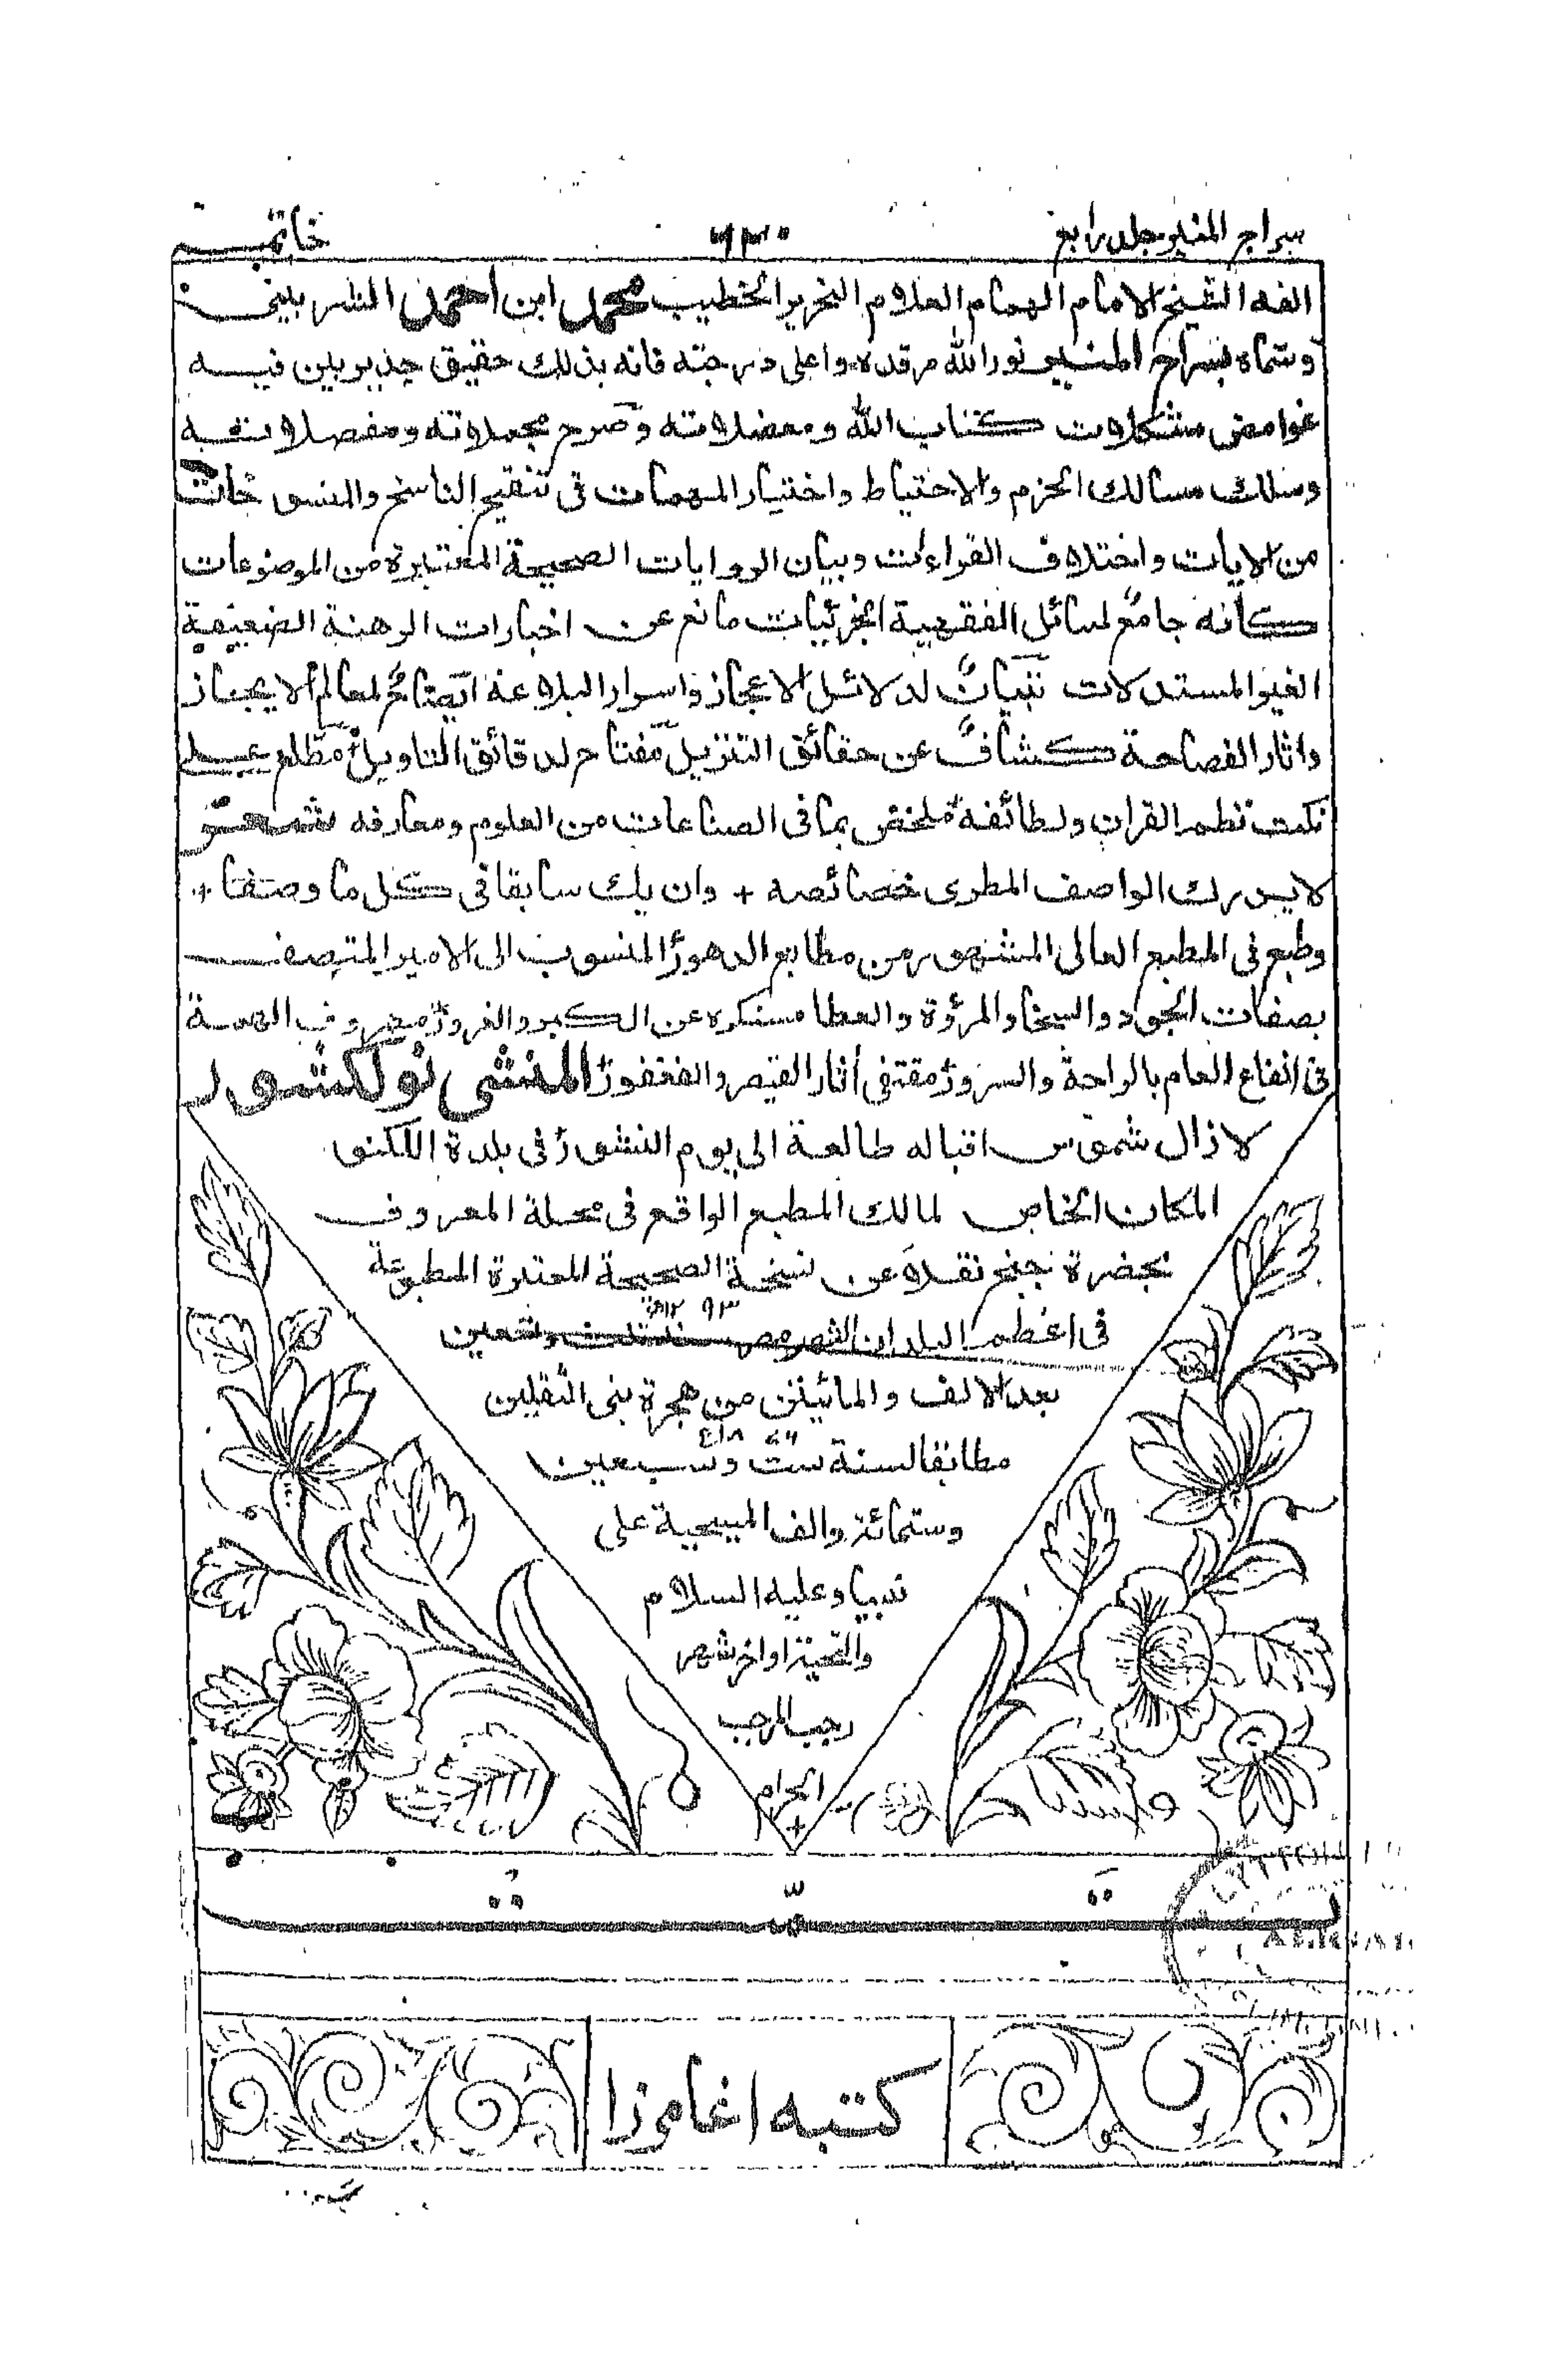 سراج المنير جلد رابع
٦٣٠
خاتمـــه
الفه الشيخ الامام الهمام العلام النحرير الخطيب محمد ابن احمد الشربيني
وسماه بسراج المنير نور الله مرقده واعلى درجته فانه بذلك حقيق جدير بين فيه
غوامض مشكلات كتاب الله ومعضلاته وصرح مجملاته ومفصلاته
وسلك مسالك الحزم والاحتياط واختيار المهمات في تنقيح الناسخ والمنسوخات
من الايات واختلاف القراءت وبيان الروايات الصحيحة المعتبرة من الموضوعات
كانه جامع لمسائل الفقهية الجزئيات مانع عن اخبارات الوهنة الضعيفة
الغير المستدلات تبيان لدلائل الاعجاز واسرار البلاغة لمعالم الايجاز
واثار الفصاحة كشاف عن حقائق التنزيل مفتاح لدقائق التاويل مطلع على
نكت نظم القران ولطائفه ملخص بما في الصناعات من العلوم ومعارفه شعر
لا يدرك الواصف المطرى خصائصه + وان يك سابقا في كل ما وصفا +
وطبع في المطبع العالى المشهور من مطابع الدهور المنسوب الى الامير المتصف
بصفات الجود والسخا والمرؤة والعطا مستكره عن الكبر والغرور مصروف الهمة
في انفاع العام بالراحة والسرور مقتفى أثار القيصر والفغفور المنشى نولكشور
لا زال شموس اقباله طالعة الى يوم النشور في بلدة اللكنو
المكان الخاص لمالك المطبع الواقع في محلة المعروف
بحضرة جنج نقلا عن نسخة الصحيحة المعتبرة المطبوعة
١٢٩٣
في اعظم البلدان الشهر مصر سنة ثلث وتسعين
بعد الالف والمائيتن من هجرة نبى الثقلين
مطابقا لسنة ست وسبعين
وستمائة والف المسيحية على
نبينا وعليه السلام
والتحية اواخر شهر
رجب المرجب
الحرام
+
تمت
كتبه اغا مرزا